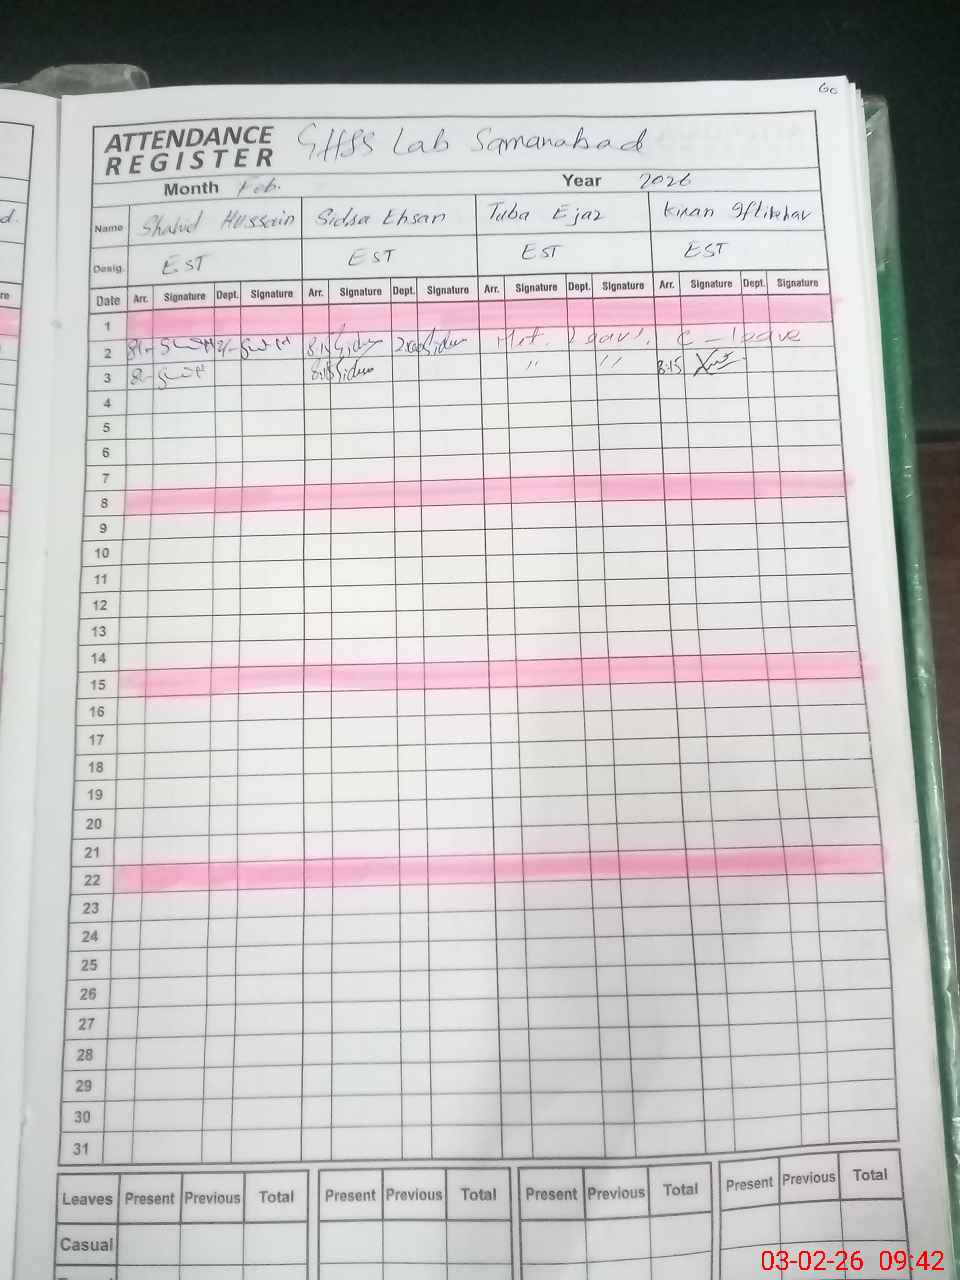 60
ATTENDANCE REGISTER GHSS Lab Samanabad
Month Feb. Year 2026
Name Shahid Hussain Sidsa Ehsan Tuba Ejaz Kiran Iftikhar
Desig. EST EST EST EST
Date Arr. Signature Dept. Signature Arr. Signature Dept. Signature Arr. Signature Dept. Signature Arr. Signature Dept. Signature
1
2 8:15 C-leave
3 8:15 " " 8:15
4
5
6
7
8
9
10
11
12
13
14
15
16
17
18
19
20
21
22
23
24
25
26
27
28
29
30
31
Leaves Present Previous Total Present Previous Total Present Previous Total Present Previous Total
Casual
03-02-26 09:42